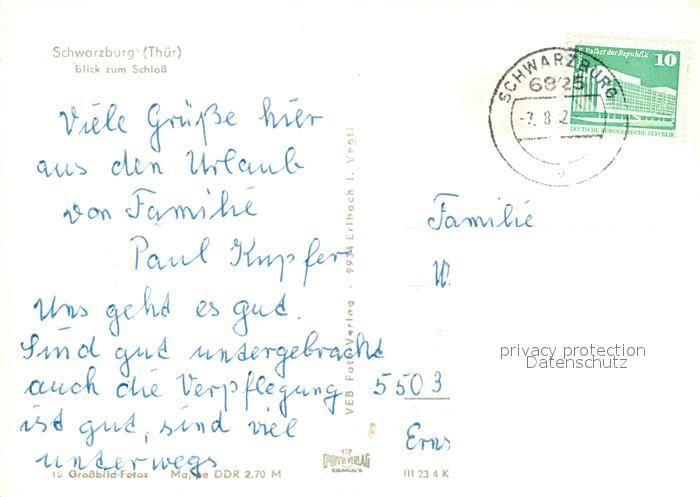 Schwarzburg (Thür)
Blick zum Schloß
Viele Grüße hier
aus den Urlaub
von Familie
Paul Kupfer
Uns geht es gut.
Sind gut untergebracht
auch die Verpflegung
ist gut, sind viel
unterwegs
10 Großbild-Fotos Mappe DDR 2.70 M
VEB Foto-Verlag · 9934 Erlbach i. Vogtl
FOTO VERLAG
ERLBACH/V
III 23 4 K
SCHWARZBURG
6825
-7. 8. 2
Palast der Republik
10
DEUTSCHE DEMOKRATISCHE REPUBLIK
Familie
W.
5503
Erns
privacy protection
Datenschutz